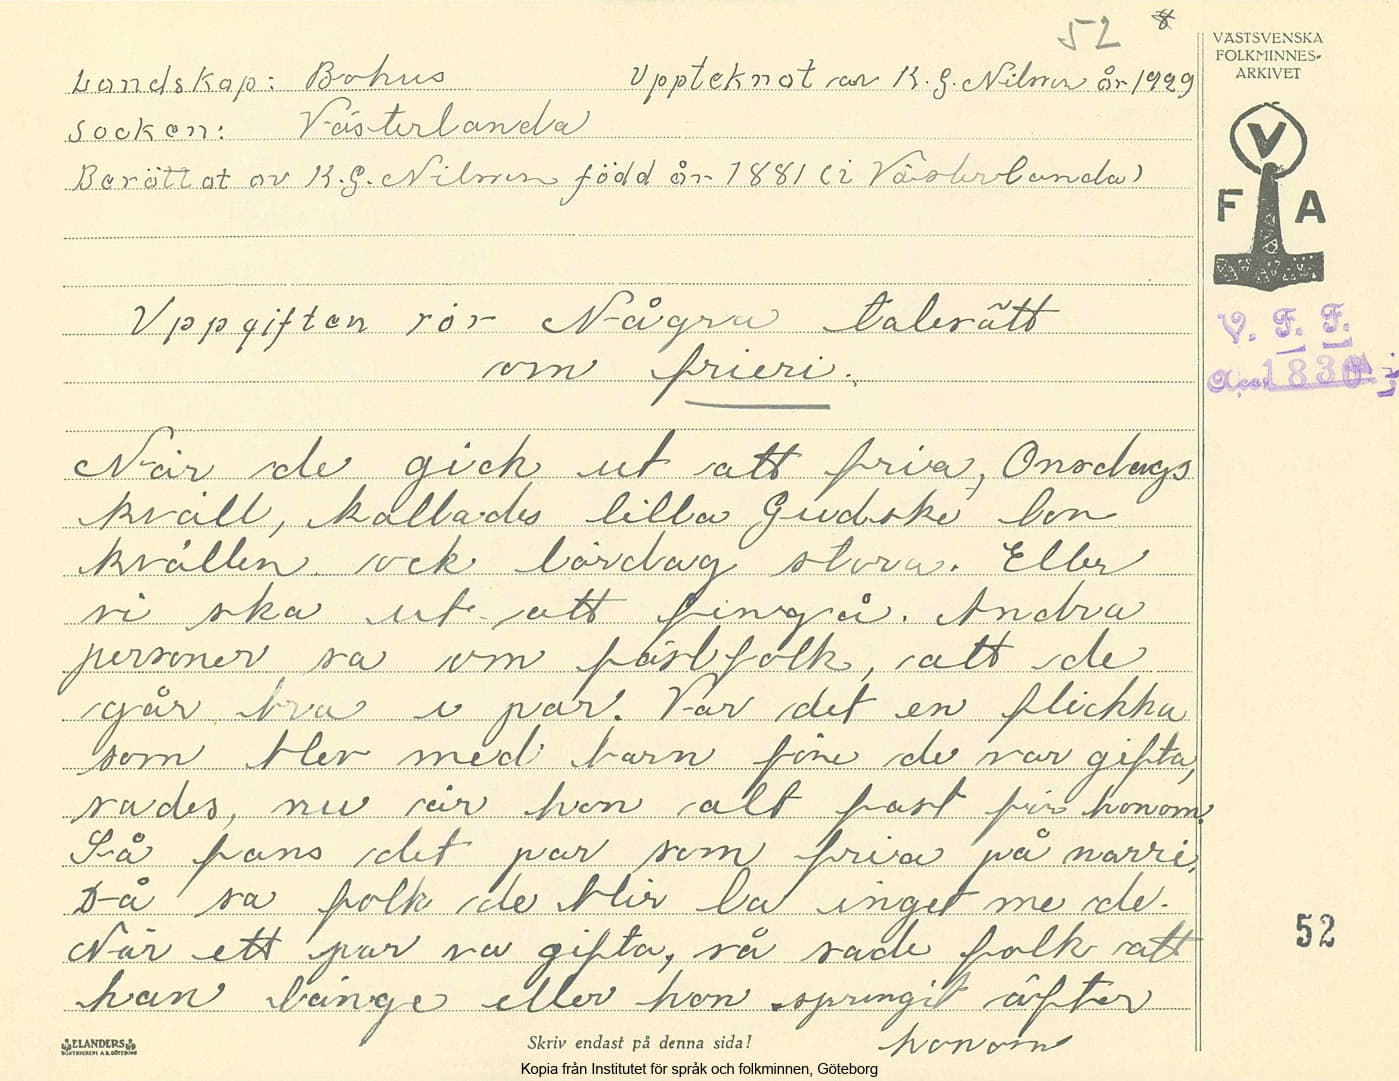 52 8
VÄSTSVENSKA
FOLKMINNES-
ARKIVET
V
F A
Landskap: Bohus Upptecknat av K. G. Nilsson år 1929
Socken: Västerlanda
Berättat av K. G. Nilsson född år 1881 (i Västerlanda)
V. F. F.
Acc. 1830
Uppgiften rör Några talesätt
om frieri.
När de gick ut att fria, Onsdags
kväll, kallades lilla Gudske lon
kvällen ock lördag stora. Eller
vi ska ut att fingå. Andra
personer sa om fästfolk, att de
går bra i par. Var det en flickka
som blev med barn före de var gifta,
sades, nu är hon alt fast för honom.
Så fans det par som fria på narri,
Då sa folk de blir la inget me de.
När ett par va gifta, så sade folk att
han länge eller hon springit äfter
honom
52
ELANDERS
BOKTRYCKERI A.B. GÖTEBORG
Skriv endast på denna sida!
Kopia från Institutet för språk och folkminnen, Göteborg